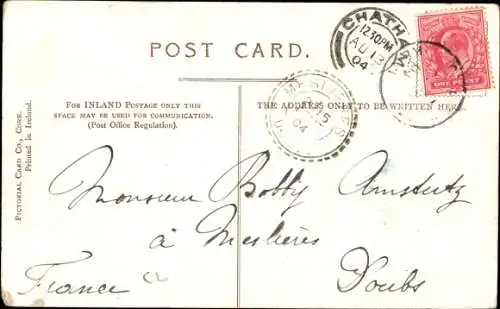 POST CARD.
CHATHAM
12.30PM
AU 13
04
ONE PENNY
15
04
FOR INLAND POSTAGE ONLY THIS
SPACE MAY BE USED FOR COMMUNICATION.
(Post Office Regulation).
THE ADDRESS ONLY TO BE WRITTEN HERE.
PICTORIAL CARD CO., CORK.
Printed in Ireland.
Monsieur Bobby Amstutz
à Meslières
Doubs
France